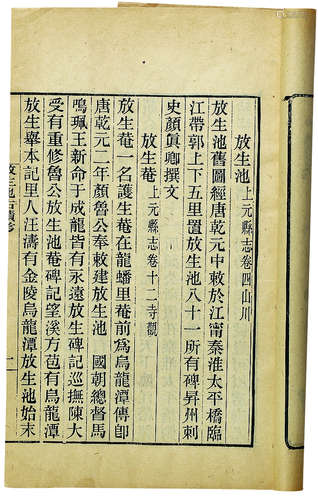 放生池上元縣志卷四山川
放生池舊圖經唐乾元中敕於江甯秦淮太平橋臨
江帶郭上下五里置放生池八十一所有碑昇州刺
史顏眞卿撰文
放生菴上元縣志卷十二寺觀
放生菴一名護生菴在龍蟠里菴前爲烏龍潭傳卽
唐乾元二年顏魯公奉敕建放生池　國朝總督馬
鳴珮王新命于成龍皆有永遠放生碑記巡撫陳大
受有重修魯公放生池菴碑記望溪方苞有烏龍潭
放生舉本記里人汪濤有金陵烏龍潭放生池始末
放生池古蹟考
一